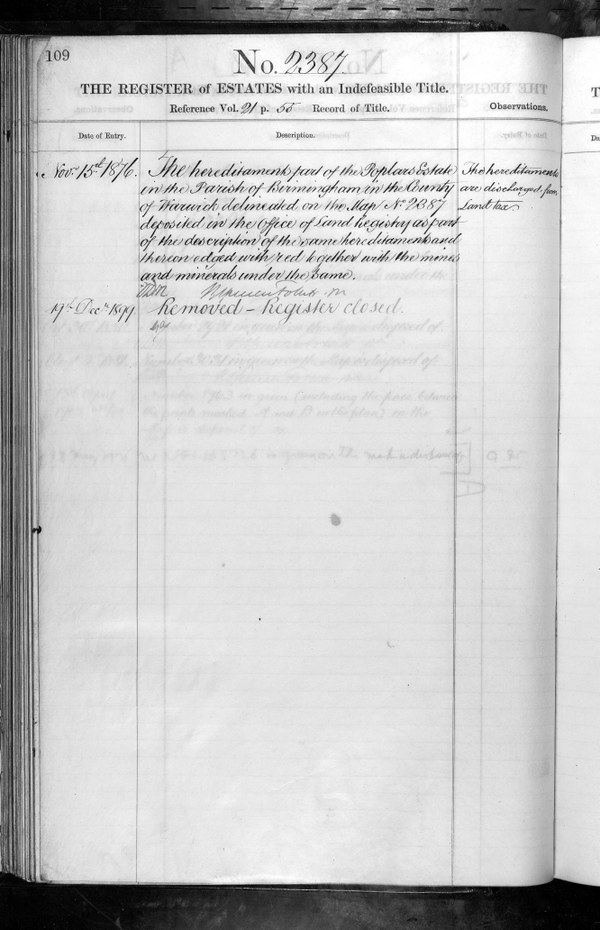 109
No. 2387.
THE REGISTER of ESTATES with an Indefeasible Title.
Reference Vol. 21 p. 55 Record of Title.
Observations.
Date of Entry.
Description.
Novr. 15th 1876.
The hereditaments part of the Poplars Estate
in the Parish of Birmingham in the County
of Warwick delineated on the Map No 2387
deposited in the Office of Land Registry as part
of the description of the same hereditaments and
thereon edged with red together with the mines
and minerals under the same.
The hereditaments
are discharged from
Land tax.
19th Decr. 1899.
Removed – Register closed.